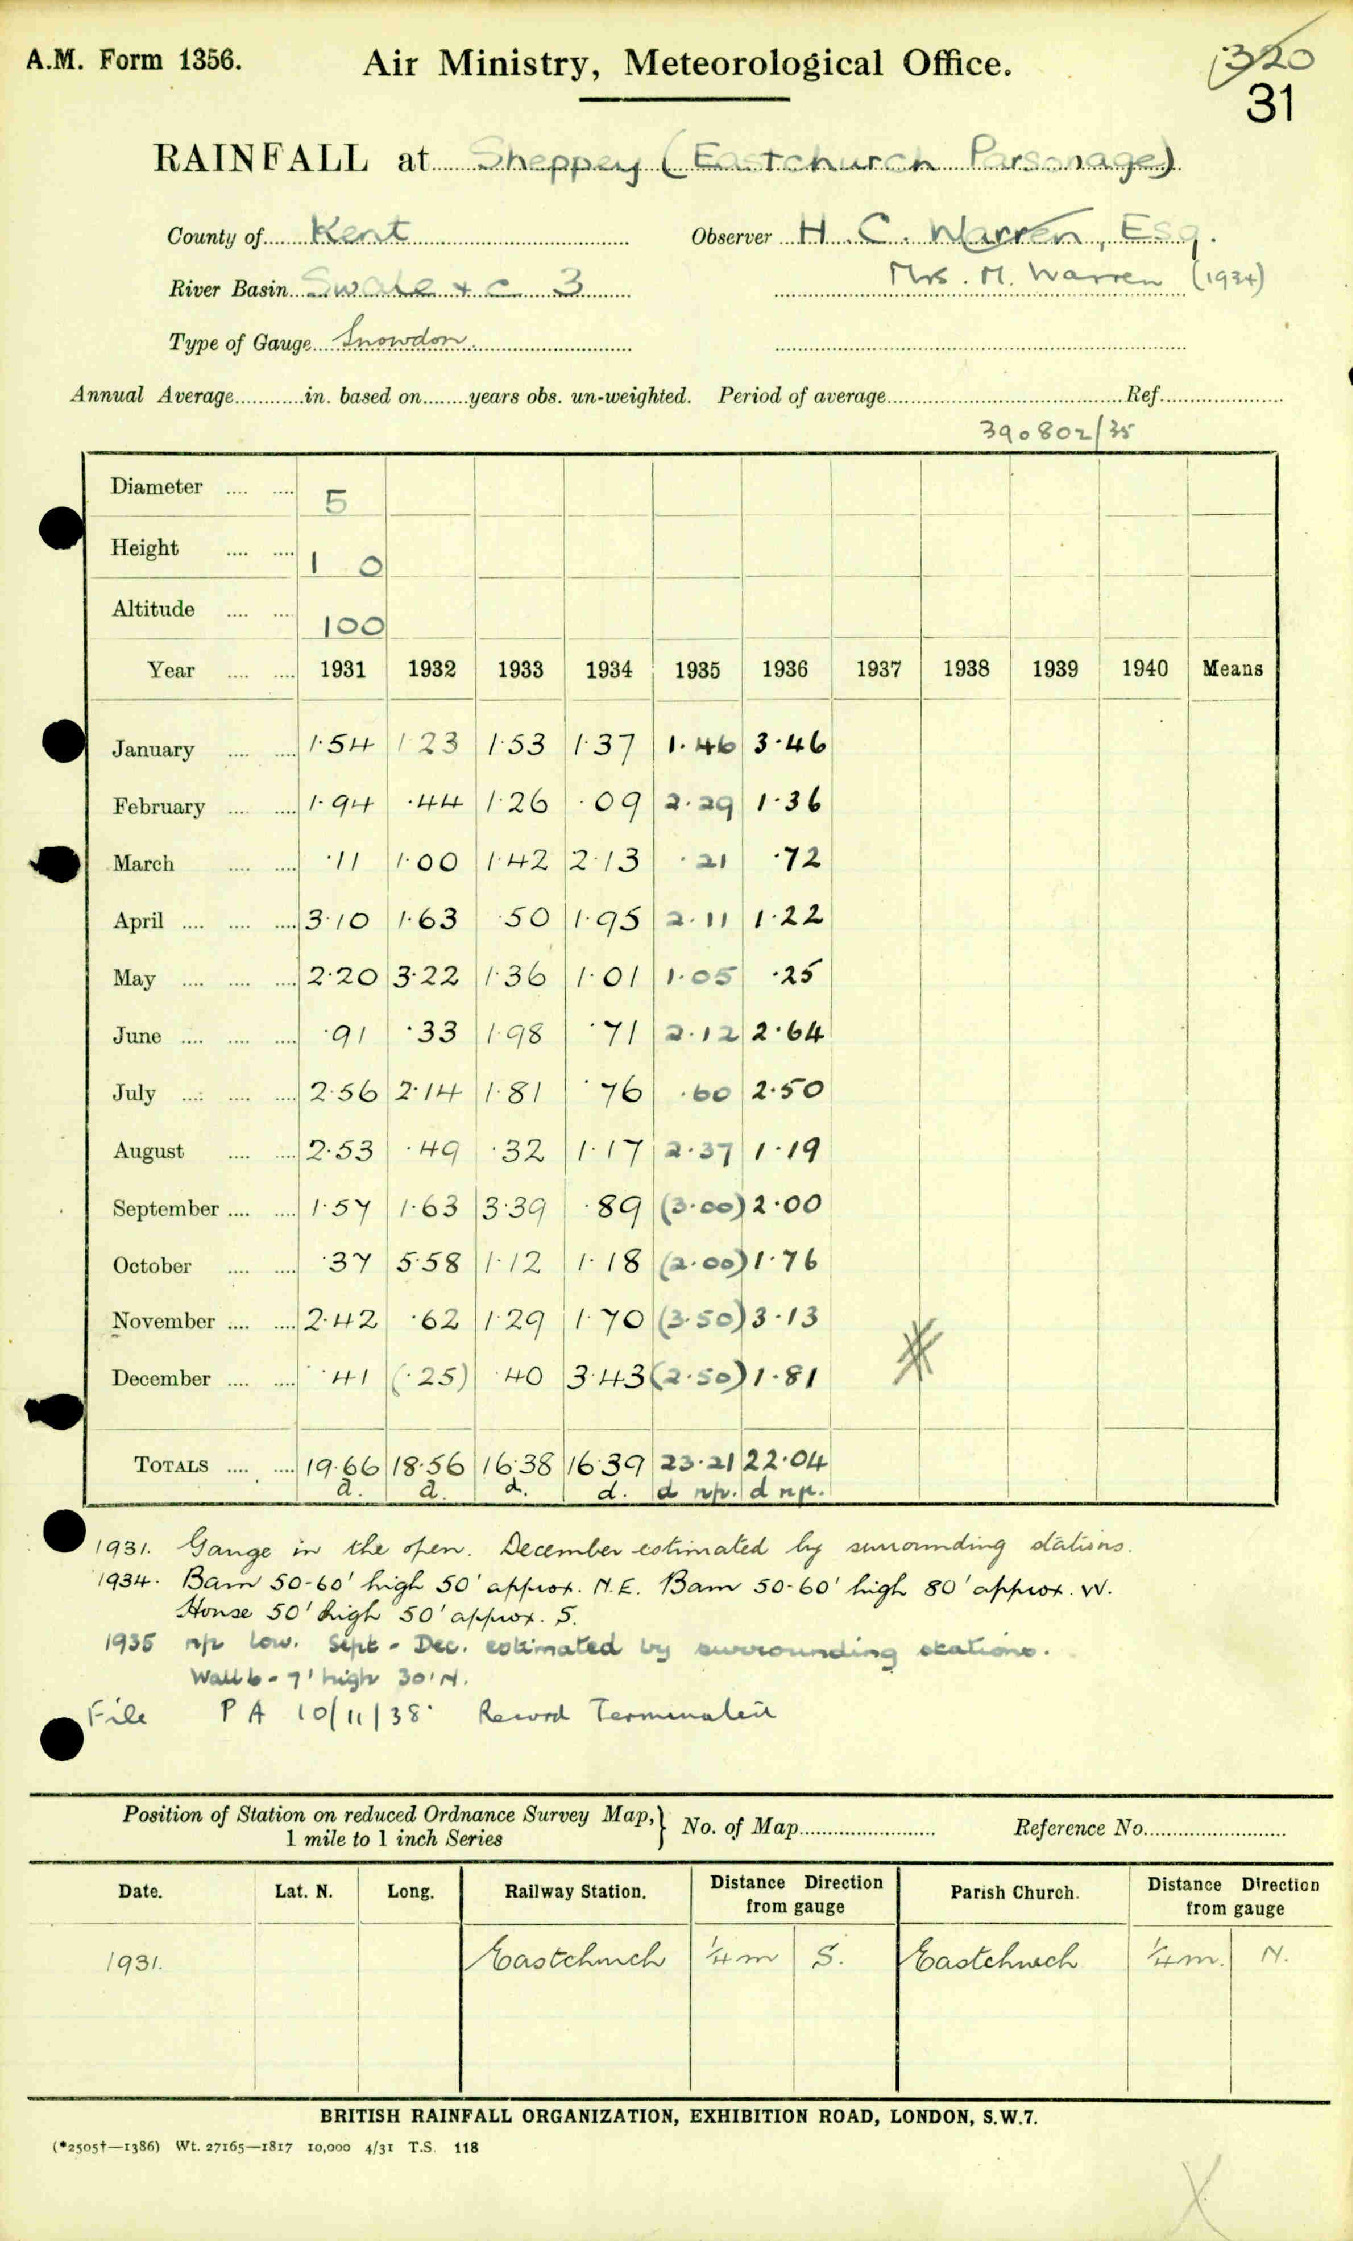 A.M. Form 1356.
Air Ministry, Meteorological Office.
320
31
RAINFALL at Sheppey (Eastchurch Parsonage)
County of Kent Observer H. C. Warren, Esq.
River Basin Swale & c 3 Mrs. M. Warren (1934)
Type of Gauge Snowdon.
Annual Average............in. based on........years obs. un-weighted. Period of average........Ref........
390802/35
Diameter .... .... 5
Height .... .... 1 0
Altitude .... .... 100
Year .... .... 1931 1932 1933 1934 1935 1936 1937 1938 1939 1940 Means
January .... .... 1·54 1·23 1·53 1·37 1·46 3·46
February .... .... 1·94 ·44 1·26 ·09 2·29 1·36
March .... .... ·11 1·00 1·42 2·13 ·21 ·72
April .... .... .... 3·10 1·63 ·50 1·95 2·11 1·22
May .... .... .... 2·20 3·22 1·36 1·01 1·05 ·25
June .... .... .... ·91 ·33 1·98 ·71 2·12 2·64
July .... .... .... 2·56 2·14 1·81 ·76 ·60 2·50
August .... .... 2·53 ·49 ·32 1·17 2·37 1·19
September .... .... 1·57 1·63 3·39 ·89 (3·00) 2·00
October .... .... ·37 5·58 1·12 1·18 (2·00) 1·76
November .... .... 2·42 ·62 1·29 1·70 (3·50) 3·13
December .... .... ·41 (·25) ·40 3·43 (2·50) 1·81
TOTALS .... .... 19·66 18·56 16·38 16·39 23·21 22·04
d. d. d. d. d np. d np.
1931. Gauge in the open. December estimated by surrounding stations.
1934. Barn 50-60' high 50' approx. N.E. Barn 50-60' high 80' approx. W.
House 50' high 50' approx. S.
1935 np low. Sept - Dec. estimated by surrounding stations.
Wall 6-7' high 30' N.
File P A 10/11/38 Record Terminated
Position of Station on reduced Ordnance Survey Map, } No. of Map........ Reference No........
1 mile to 1 inch Series
Date. Lat. N. Long. Railway Station. Distance Direction from gauge Parish Church. Distance Direction from gauge
1931. Eastchurch ¼m S. Eastchurch ¼m. N.
BRITISH RAINFALL ORGANIZATION, EXHIBITION ROAD, LONDON, S.W.7.
(*2505†—1386) Wt. 27165—1817 10,000 4/31 T.S. 118